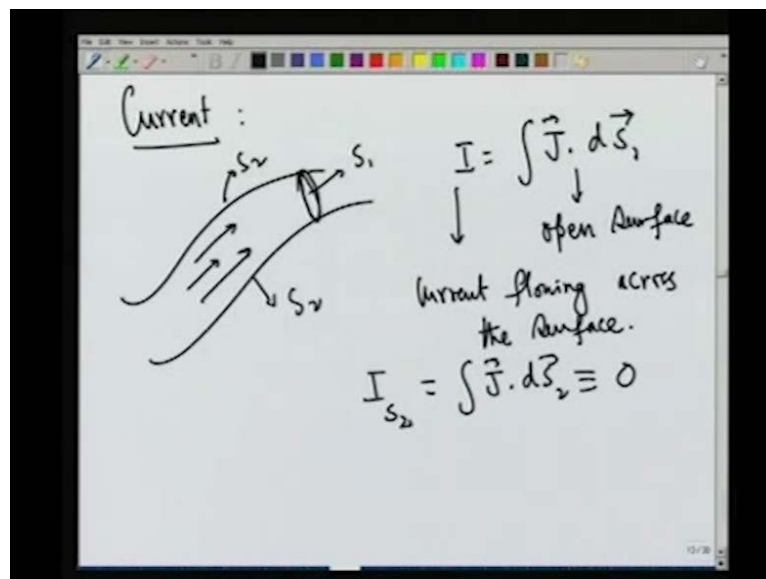 File Edit View Insert Actions Tools Help
Current :
S₂
S₁
I = ∫ J⃗ . dS⃗₁
open surface
S₂
Current flowing across
the surface.
I_S₂ = ∫ J⃗ . dS⃗₂ ≡ 0